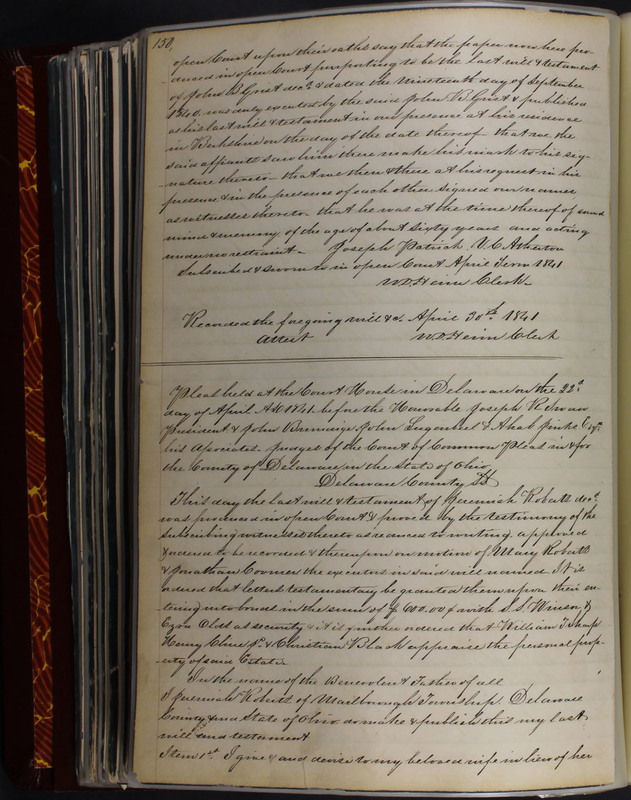 150,
open Court upon their oaths say that the paper now here pro-
duced in open Court purporting to be the last will & testament
of John B Grist decd. & dated the Nineteenth day of September
1840, was duly executed by the said John B. Grist & published
as his last will & testament in our presence at his residence
in Berkshire on the day of the date thereof that we, the
said affiants saw him there make his mark to his sig-
nature thereto that we then & there at his request in his
presence & in the presence of each other signed our names
as witnesses thereto that he was at the time thereof of sound
mind & memory, of the age of about sixty years and acting
under no restraint - Joseph Patrick, V. C. Atherton
Subscribed & sworn to in open Court April Term 1841
W. D. Heim Clerk.
Recorded the foregoing will &c. April 30th. 1841
Attest W. D. Heim Clerk
Pleas held at the Court House in Delaware on the 22d.
day of April AD 1841. before the Honorable Joseph R. Swan
President & John Brunnige John Lugenbeel & Ahab Jinks Esqrs.
his Associates - Judges of the Court of Common Pleas in & for
the County of Delaware, in the State of Ohio,
Delaware County SS
This day the last will & testament of Jeremiah Roberts decd.
was produced in open Court & proved by the testimony of the
subscribing witnesses thereto as reduced to writing. approved
& ordered to be recorded & thereupon on motion of Mary Roberts
& Jonathan Coomer the executors in said will named. It is
ordered that letters testamentary be granted them upon their en-
tering into bonds in the sum of $ 600.00 with S. S. Winsor &
Ezra Olds as security & it is further ordered that William T Sharp
Henry Cline Sr. & Christian Black appraise the personal prop-
erty of said Estate.
In the name of the Benevolent Father of all
I Jeremiah Roberts of Marlborough Township. Delaware
County, and State of Ohio do make & publish this my last
will and testament
Item 1st. I give & and devise to my beloved wife in lieu of her